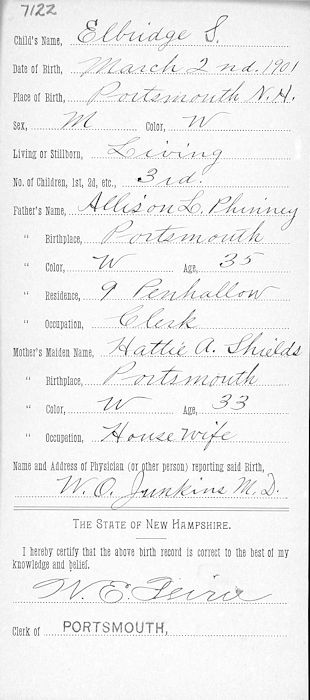 7122
Child's Name, Elbridge S.
Date of Birth, March 2nd. 1901
Place of Birth, Portsmouth N.H.
Sex, M Color, W
Living or Stillborn, Living
No. of Children, 1st, 2d, etc., 3rd.
Father's Name, Allison L. Phinney
" Birthplace, Portsmouth
" Color, W Age, 35
" Residence, 9 Penhallow
" Occupation, Clerk
Mother's Maiden Name, Hattie A. Shields
" Birthplace, Portsmouth
" Color, W Age, 33
" Occupation, Housewife
Name and Address of Physician (or other person) reporting said Birth,
W. O. Junkins M.D.
THE STATE OF NEW HAMPSHIRE.
I hereby certify that the above birth record is correct to the best of my
knowledge and belief.
W. E.
Clerk of PORTSMOUTH,